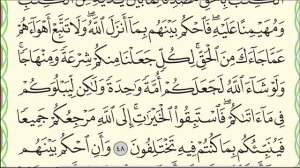 الْكِتَٰبِ
وَمُهَيْمِنًا عَلَيْهِ ۖ فَٱحْكُم بَيْنَهُم بِمَآ أَنزَلَ ٱللَّهُ ۖ وَلَا تَتَّبِعْ أَهْوَآءَهُمْ
عَمَّا جَآءَكَ مِنَ ٱلْحَقِّ ۚ لِكُلٍّ جَعَلْنَا مِنكُمْ شِرْعَةً وَمِنْهَاجًا ۚ
وَلَوْ شَآءَ ٱللَّهُ لَجَعَلَكُمْ أُمَّةً وَٰحِدَةً وَلَٰكِن لِّيَبْلُوَكُمْ
فِى مَآ ءَاتَىٰكُمْ ۖ فَٱسْتَبِقُوا۟ ٱلْخَيْرَٰتِ ۚ إِلَى ٱللَّهِ مَرْجِعُكُمْ جَمِيعًا
فَيُنَبِّئُكُم بِمَا كُنتُمْ فِيهِ تَخْتَلِفُونَ ٤٨ وَأَنِ ٱحْكُم بَيْنَهُم